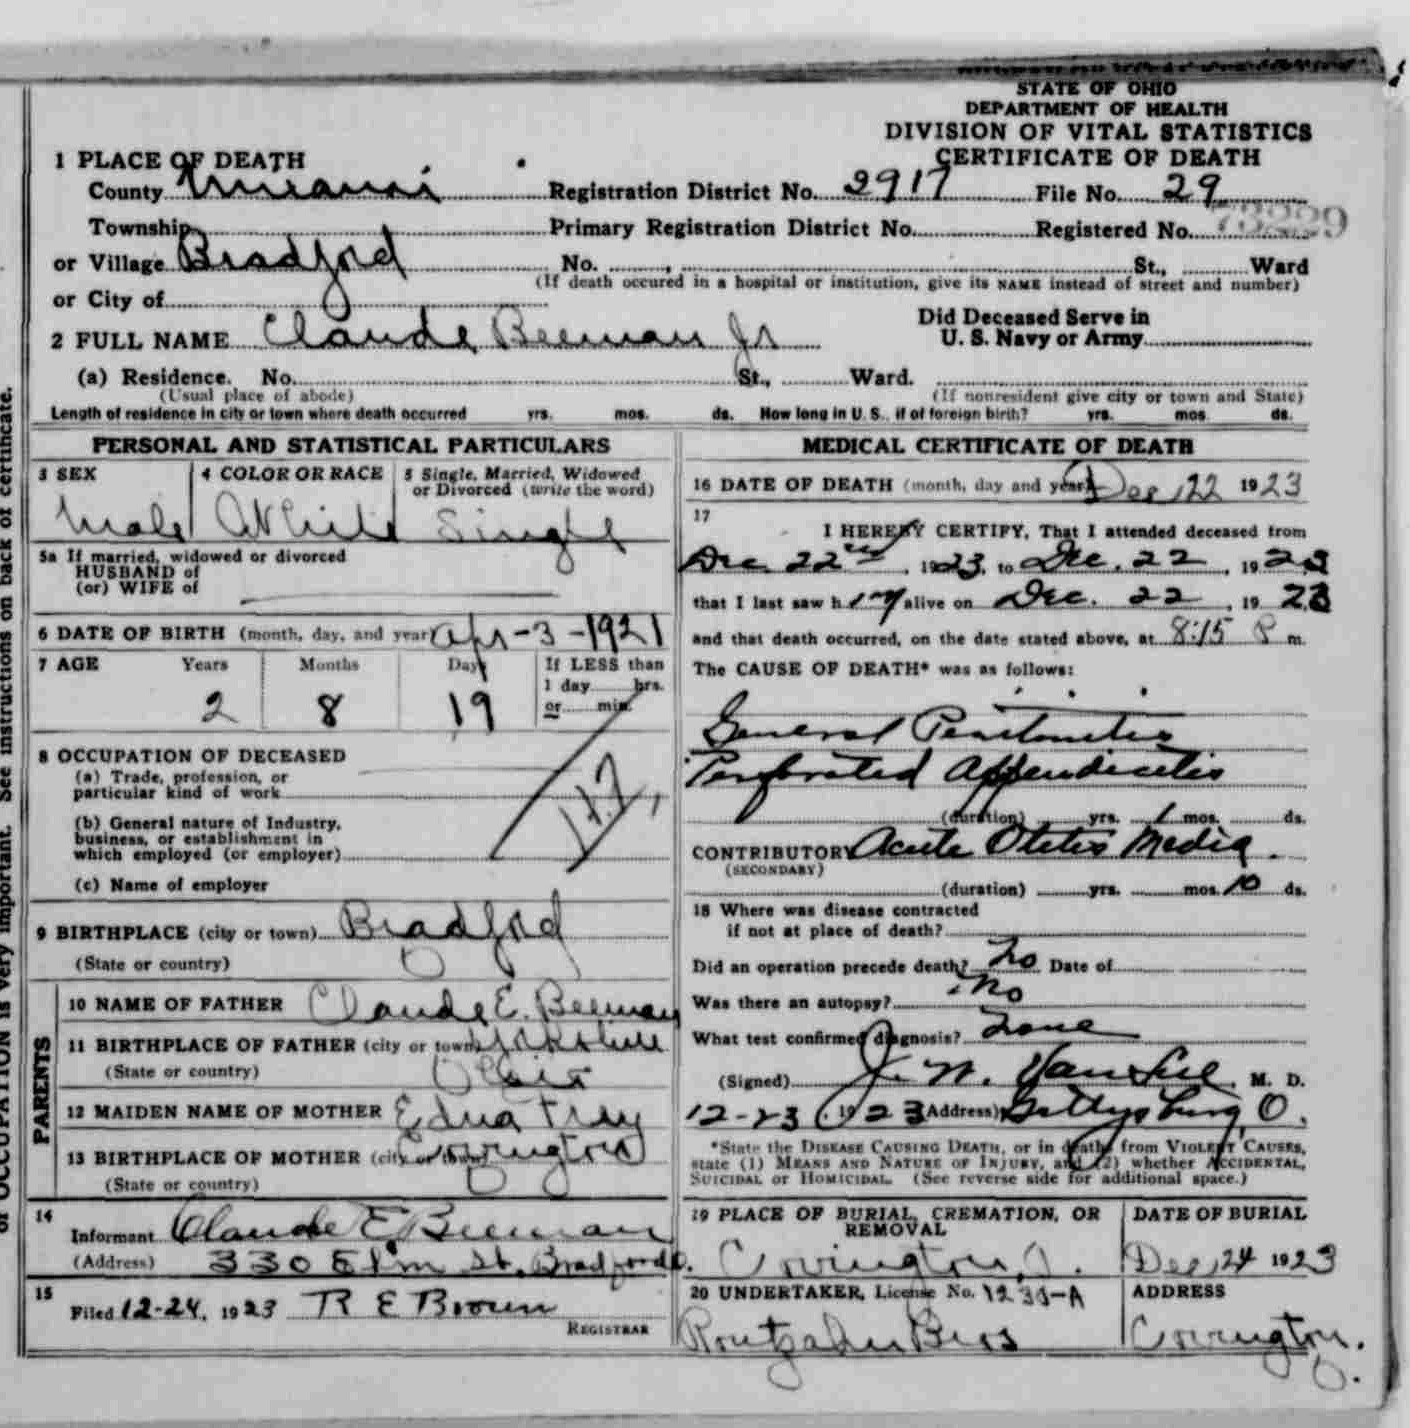 STATE OF OHIO
DEPARTMENT OF HEALTH
DIVISION OF VITAL STATISTICS
CERTIFICATE OF DEATH
1 PLACE OF DEATH
County Miami Registration District No. 2917 File No. 29
Township Primary Registration District No. Registered No. 73229
or Village Bradford No. , St., Ward
(If death occured in a hospital or institution, give its NAME instead of street and number)
or City of
2 FULL NAME Claude Beeman Jr
Did Deceased Serve in
U. S. Navy or Army
(a) Residence. No. St., Ward.
(Usual place of abode) (If nonresident give city or town and State)
Length of residence in city or town where death occurred yrs. mos. ds. How long in U. S., if of foreign birth? yrs. mos. ds.
PERSONAL AND STATISTICAL PARTICULARS
3 SEX 4 COLOR OR RACE 5 Single, Married, Widowed
or Divorced (write the word)
Male White Single
5a If married, widowed or divorced
HUSBAND of
(or) WIFE of
6 DATE OF BIRTH (month, day, and year) Apr-3-1921
7 AGE Years Months Days If LESS than
1 day hrs.
or min.
2 8 19
8 OCCUPATION OF DECEASED
(a) Trade, profession, or
particular kind of work
(b) General nature of Industry,
business, or establishment in
which employed (or employer)
(c) Name of employer
117
9 BIRTHPLACE (city or town) Bradford
(State or country) O
PARENTS
10 NAME OF FATHER Claude E. Beeman
11 BIRTHPLACE OF FATHER (city or town) Yorkshire
(State or country) Ohio
12 MAIDEN NAME OF MOTHER Edna Frey
13 BIRTHPLACE OF MOTHER (city or town) Covington
(State or country) O
14
Informant Claude E Beeman
(Address) 330 Elm St. Bradford O.
15
Filed 12-24, 1923 R E Brown
REGISTRAR
MEDICAL CERTIFICATE OF DEATH
16 DATE OF DEATH (month, day and year) Dec 22 1923
17
I HEREBY CERTIFY, That I attended deceased from
Dec 22nd, 1923, to Dec. 22, 1923
that I last saw him alive on Dec. 22, 1923
and that death occurred, on the date stated above, at 8:15 P m.
The CAUSE OF DEATH* was as follows:
General Peritonitis
Perforated Appendicitis
(duration) yrs. 1 mos. ds.
CONTRIBUTORY Acute Otetis Media.
(SECONDARY)
(duration) yrs. mos. 10 ds.
18 Where was disease contracted
if not at place of death?
Did an operation precede death? No Date of
Was there an autopsy? No
What test confirmed diagnosis? None
(Signed) J. W. M. D.
12-23, 1923 (Address) Gettysburg, O.
*State the DISEASE CAUSING DEATH, or in deaths from VIOLENT CAUSES,
state (1) MEANS AND NATURE OF INJURY, and (2) whether ACCIDENTAL,
SUICIDAL or HOMICIDAL. (See reverse side for additional space.)
19 PLACE OF BURIAL, CREMATION, OR
REMOVAL
DATE OF BURIAL
Covington, O. Dec 24 1923
20 UNDERTAKER, License No. 1235-A ADDRESS
Routzahn Bros Covington, O.
OF OCCUPATION is very important. See instructions on back of certificate.